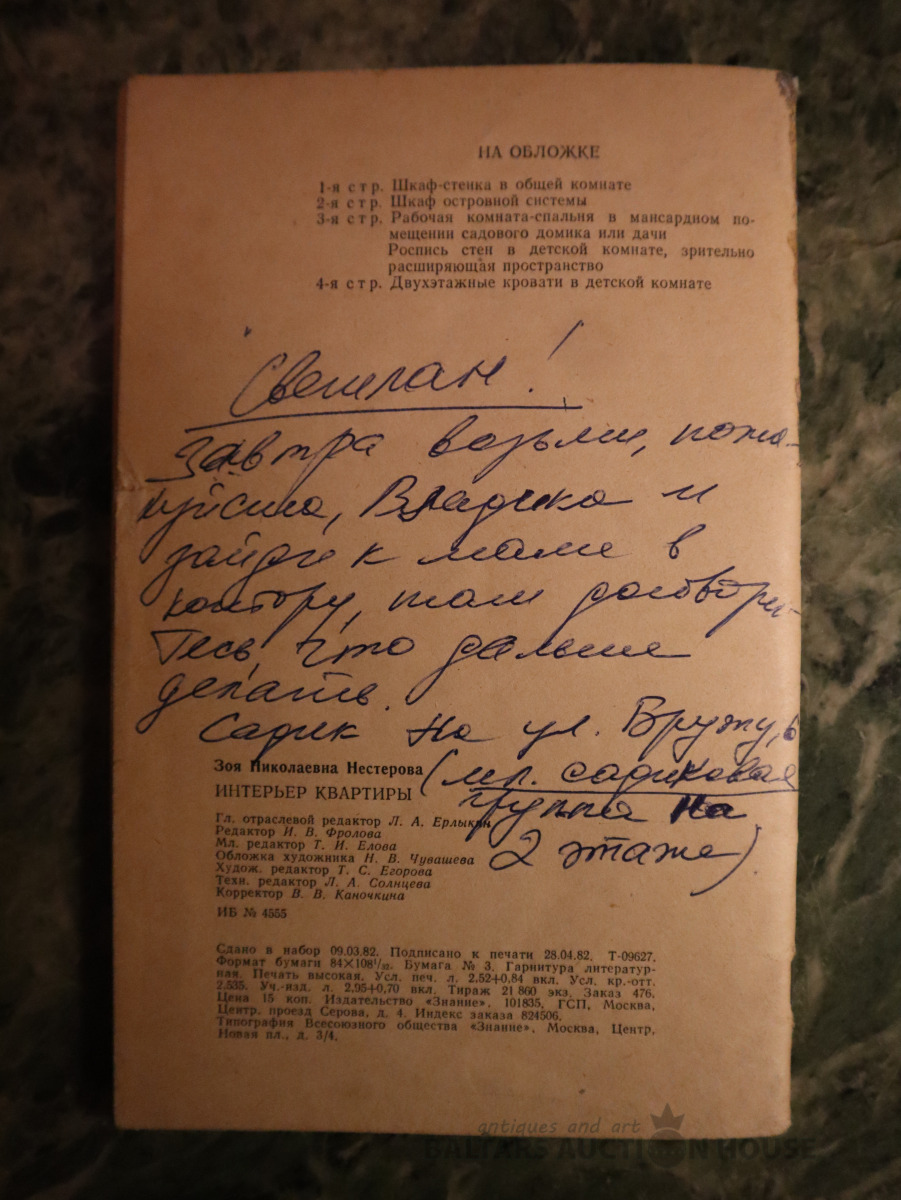 НА ОБЛОЖКЕ
1-я стр. Шкаф-стенка в общей комнате
2-я стр. Шкаф островной системы
3-я стр. Рабочая комната-спальня в мансардном по-
мещении садового домика или дачи
Роспись стен в детской комнате, зрительно
расширяющая пространство
4-я стр. Двухэтажные кровати в детской комнате
Светлан!
Завтра возьми, пожа-
луйста, Владика и
зайди к маме в
контору, там договори-
тесь, что дальше
делать.
Садик на ул. Вружу, 6
(мл. садиковая
группа на
2 этаже)
Зоя Николаевна Нестерова
ИНТЕРЬЕР КВАРТИРЫ
Гл. отраслевой редактор Л. А. Ерлыкин
Редактор И. В. Фролова
Мл. редактор Т. И. Елова
Обложка художника Н. В. Чувашева
Худож. редактор Т. С. Егорова
Техн. редактор Л. А. Солнцева
Корректор В. В. Каночкина
ИБ № 4555
Сдано в набор 09.03.82. Подписано к печати 28.04.82. Т-09627.
Формат бумаги 84×108¹/₃₂. Бумага № 3. Гарнитура литератур-
ная. Печать высокая. Усл. печ. л. 2,52+0,84 вкл. Усл. кр.-отт.
2,535. Уч.-изд. л. 2,95+0,70 вкл. Тираж 21 860 экз. Заказ 476.
Цена 15 коп. Издательство «Знание». 101835, ГСП, Москва,
Центр, проезд Серова, д. 4. Индекс заказа 824506.
Типография Всесоюзного общества «Знание». Москва, Центр,
Новая пл., д. 3/4.
antiques and art
BALTARS AUCTION HOUSE